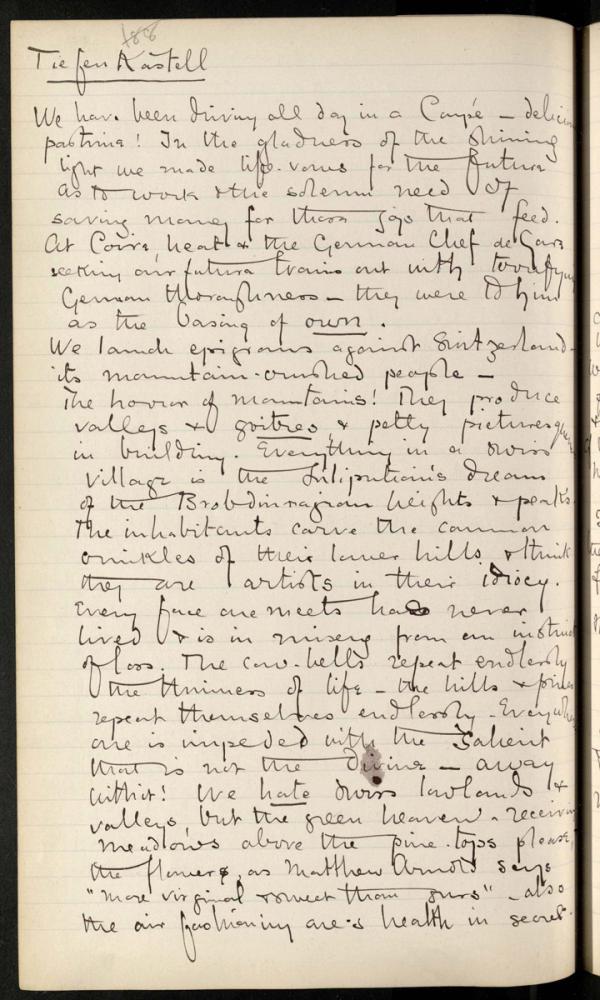 188
Tiefen Kastell
We have been driving all day in a Coupé – delicious
pastime! In the gladness of the shining
light we made life-vows for the future
as to work & the solemn need of
saving money for those joys that feed.
At Coire, heat & the German Chef de Gare
seeking our future trains out with terrifying
German thoroughness – they were to him
as the basing of own.
We launch epigrams against Switzerland –
its mountain-crushed people –
The horror of mountains! They produce
valleys & goitres & petty picturesque
in building. Everything in a Swiss
village is the Liliputian's dream
of the Brobdinragian heights & peaks.
The inhabitants carve the common
crinkles of their lower hills & think
they are artists in their idiocy.
Every face one meets has never
lived & is in misery from an instinct
of loss. The cow-bells repeat endlessly
the thinness of life – the hills & pines
repeat themselves endlessly. Everywhere
one is impeded with the Salient
that is not the Divine – away
with it! We hate Swiss lowlands &
valleys, but the green heaven-receiving
meadows above the pine-tops please,
the flowers, as Matthew Arnold says
"More virginal & sweet than ours" – also
the air fashioning one's health in secret.